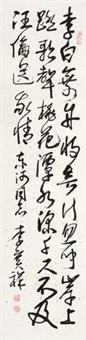 李白乘舟将欲行忽闻岸上
踏歌聲桃花潭水深千尺不及
汪倫送我情 同志 李